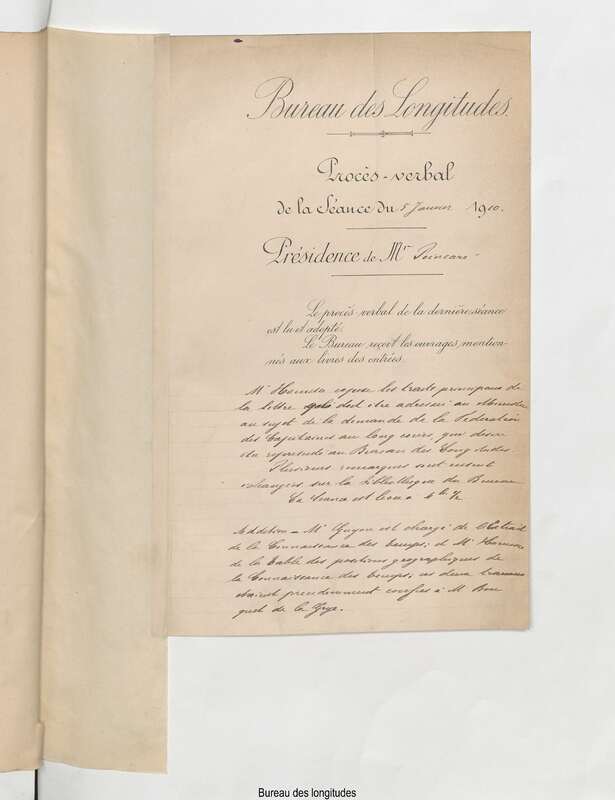 Bureau des Longitudes.
Procès-verbal
de la Séance du 5 Janvier 1910.
Présidence de Mr Poincaré
Le procès verbal de la dernière séance
est lu et adopté.
Le Bureau reçoit les ouvrages mention-
nés aux livres des entrées.
Mr Hanusse expose les traits principaux de
la lettre qui doit être adressée au Ministre
au sujet de la demande de la Fédération
des Capitaines au long cours, qui désire
être représentée au Bureau des Longitudes.
Plusieurs remarques sont ensuite
échangées sur la bibliothèque du Bureau
La séance est levée à 4h ½
Addition – Mr Guyou est chargé de l'Extrait
de la Connaissance des Temps; et Mr Hanusse
de la Table des positions géographiques de
la Connaissance des Temps; ces deux travaux
étaient précédemment confiés à M. Bou
quet de la Grye.